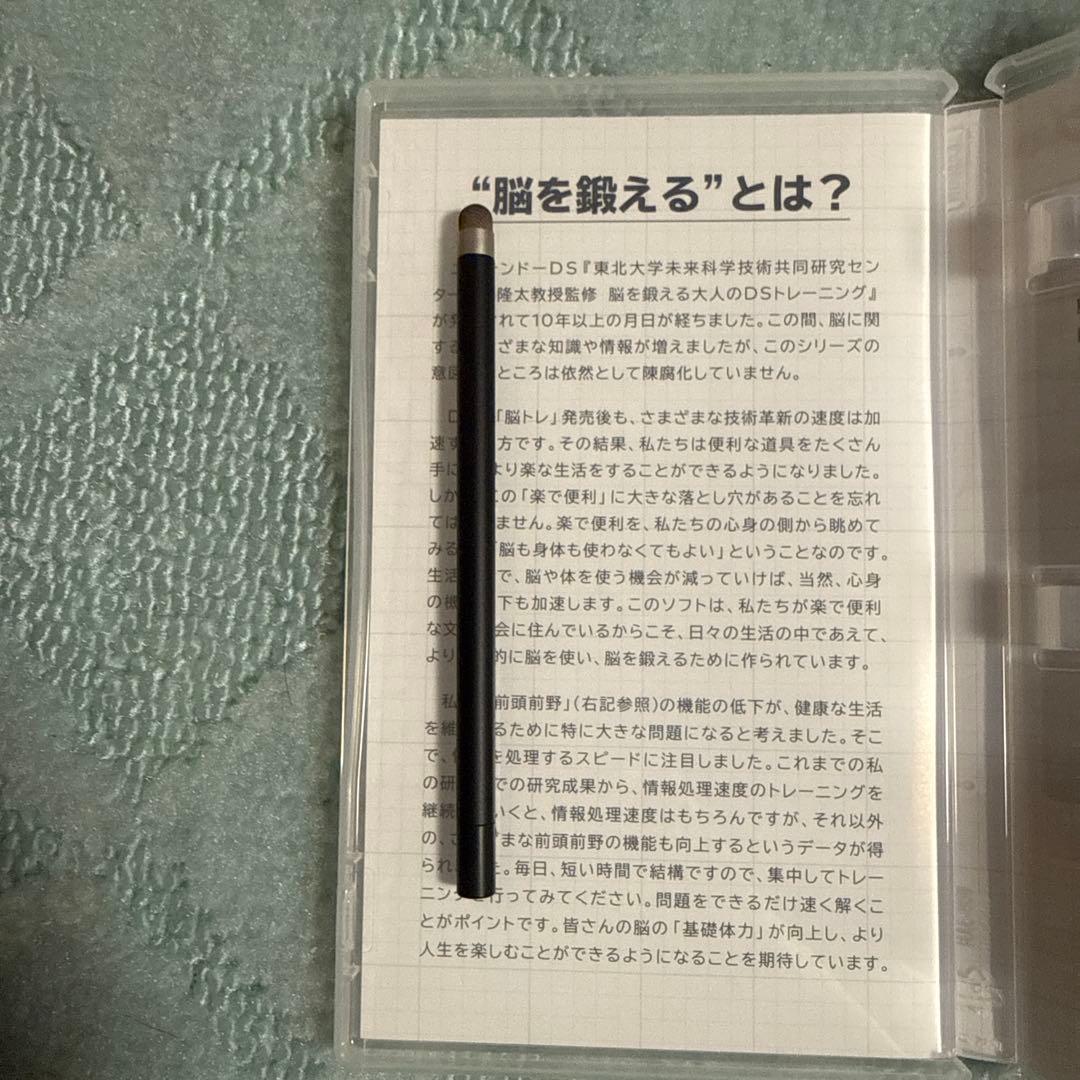 “脳を鍛える”とは？
ンドーDS『東北大学未来科学技術共同研究セン
ター 隆太教授監修 脳を鍛える大人のDSトレーニング』
が れて10年以上の月日が経ちました。この間、脳に関
する ざまな知識や情報が増えましたが、このシリーズの
意図 ところは依然として陳腐化していません。
D 「脳トレ」発売後も、さまざまな技術革新の速度は加
速す 方です。その結果、私たちは便利な道具をたくさん
手に より楽な生活をすることができるようになりました。
しか この「楽で便利」に大きな落とし穴があることを忘れ
ては ません。楽で便利を、私たちの心身の側から眺めて
みる 「脳も身体も使わなくてもよい」ということなのです。
生活 で、脳や体を使う機会が減っていけば、当然、心身
の機 下も加速します。このソフトは、私たちが楽で便利
な文 会に住んでいるからこそ、日々の生活の中であえて、
より 的に脳を使い、脳を鍛えるために作られています。
私 前頭前野」(右記参照)の機能の低下が、健康な生活
を維 るために特に大きな問題になると考えました。そこ
で、 を処理するスピードに注目しました。これまでの私
の研 での研究成果から、情報処理速度のトレーニングを
継続 いくと、情報処理速度はもちろんですが、それ以外
の、 まな前頭前野の機能も向上するというデータが得
られ た。毎日、短い時間で結構ですので、集中してトレー
ニング 行ってみてください。問題をできるだけ速く解くこ
とがポイントです。皆さんの脳の「基礎体力」が向上し、より
人生を楽しむことができるようになることを期待しています。